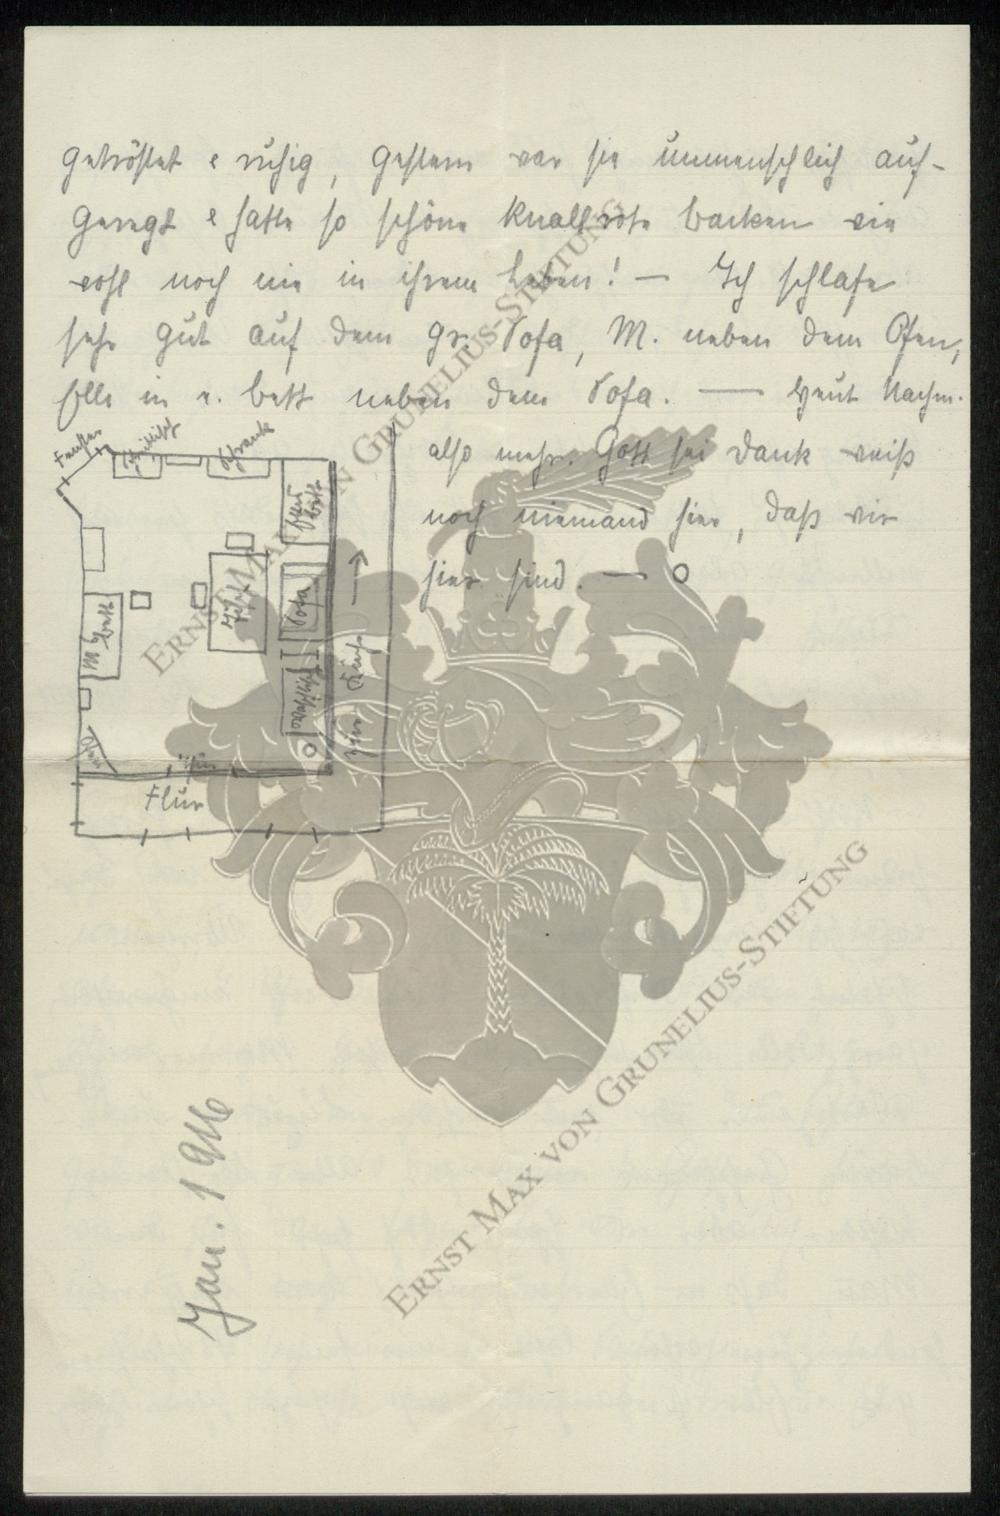 getröstet & ruhig, gestern war sie unmenschlich auf-
geregt & hatte so schöne knallrote Backen wie
wohl noch nie in ihrem Leben! — Ich schlafe
sehr gut auf dem gr. Sofa, M. neben dem Ofen,
Elli in e. Bett neben dem Sofa. — Heut Nachm.
also mehr. Gott sei Dank weiß
noch niemand hier, daß wir
hier sind. —
Fenster
Schrank
Bett
Sofa
Tisch
M's Bett
Waschtisch
zur Küche
Ofen
Thür
Flur
Jan. 1916
ERNST MAX VON GRUNELIUS-STIFTUNG
ERNST MAX VON GRUNELIUS-STIFTUNG